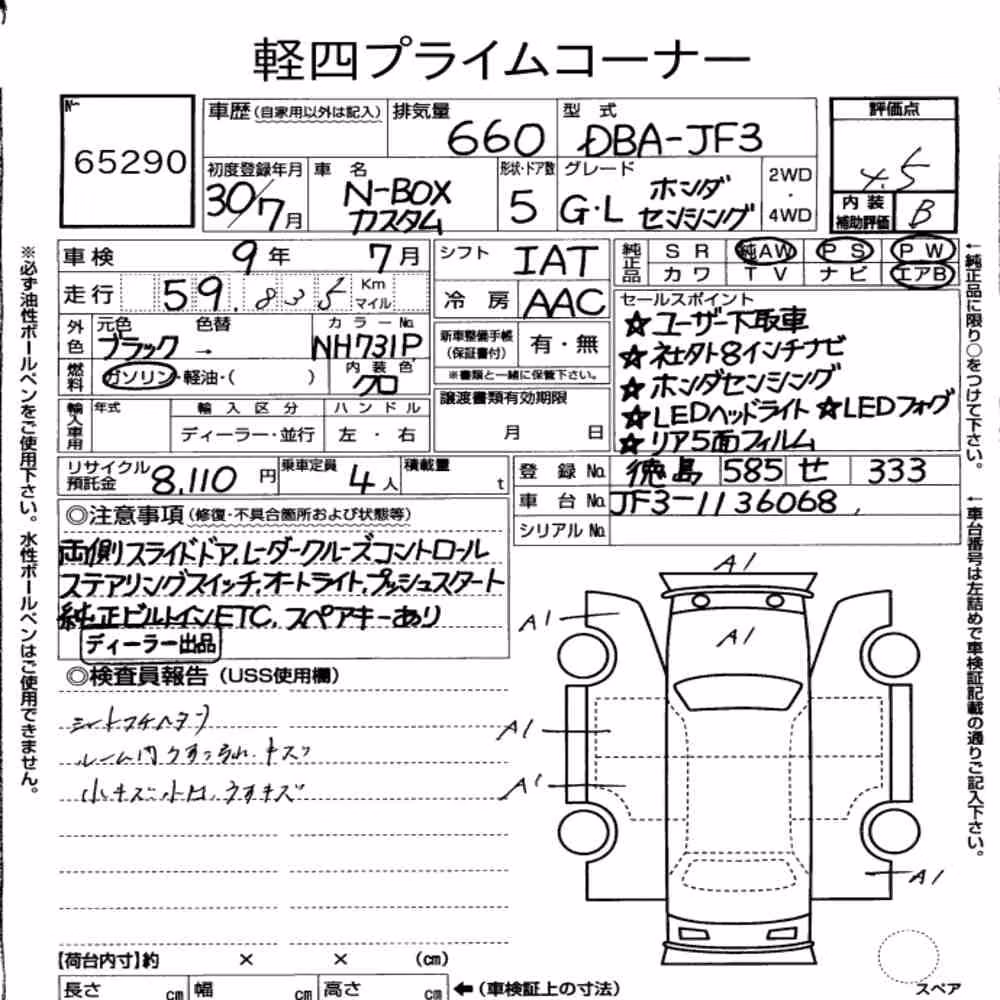 軽四プライムコーナー
№
65290
車歴(自家用以外は記入)
排気量
660
型式
DBA-JF3
評価点
4.5
初度登録年月
30/7月
車名
N-BOX
カスタム
形状・ドア数
5
グレード
G・L ホンダ
センシング
2WD
・
4WD
内装
補助評価
B
車検 9年 7月
シフト IAT
純正品
SR 純AW PS PW
カワ TV ナビ エアB
走行 59,835 Km
マイル
冷房 AAC
セールスポイント
☆ユーザー下取車
☆社外8インチナビ
☆ホンダセンシング
☆LEDヘッドライト ☆LEDフォグ
☆リア5面フィルム
外色
元色 色替
ブラック →
カラーNo.
NH731P
新車整備手帳
(保証書付)
有・無
※書類と一緒に保管下さい。
燃料
ガソリン・軽油・( )
内装色
クロ
輸入車用
年式
輸入区分
ディーラー・並行
ハンドル
左・右
譲渡書類有効期限
月 日
リサイクル
預託金
8,110 円
乗車定員
4人
積載量
t
登録No. 徳島 585 せ 333
車台No. JF3-1136068
シリアルNo.
◎注意事項(修復・不具合箇所および状態等)
両側スライドドア、レーダークルーズコントロール
ステアリングスイッチ、オートライト、プッシュスタート
純正ビルトインETC、スペアキーあり
ディーラー出品
◎検査員報告(USS使用欄)
ルーム内
キズ
小キズ
A1
A1
A1
A1
A1
A1
【荷台内寸】約 × × (cm)
長さ cm 幅 cm 高さ cm
←(車検証上の寸法)
スペア
※必ず油性ボールペンをご使用下さい。水性ボールペンはご使用できません。
←純正品に限り○をつけて下さい。
←車台番号は左詰めで車検証記載の通りご記入下さい。